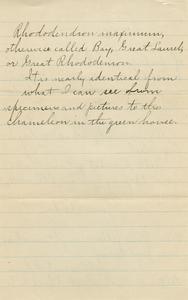 Rhododendron maximum,
otherwise called Bay, Great Laurel,
or Great Rhododendron.
It is nearly identical from
what I can see from
specimens and pictures to the
chameleon in the green house.